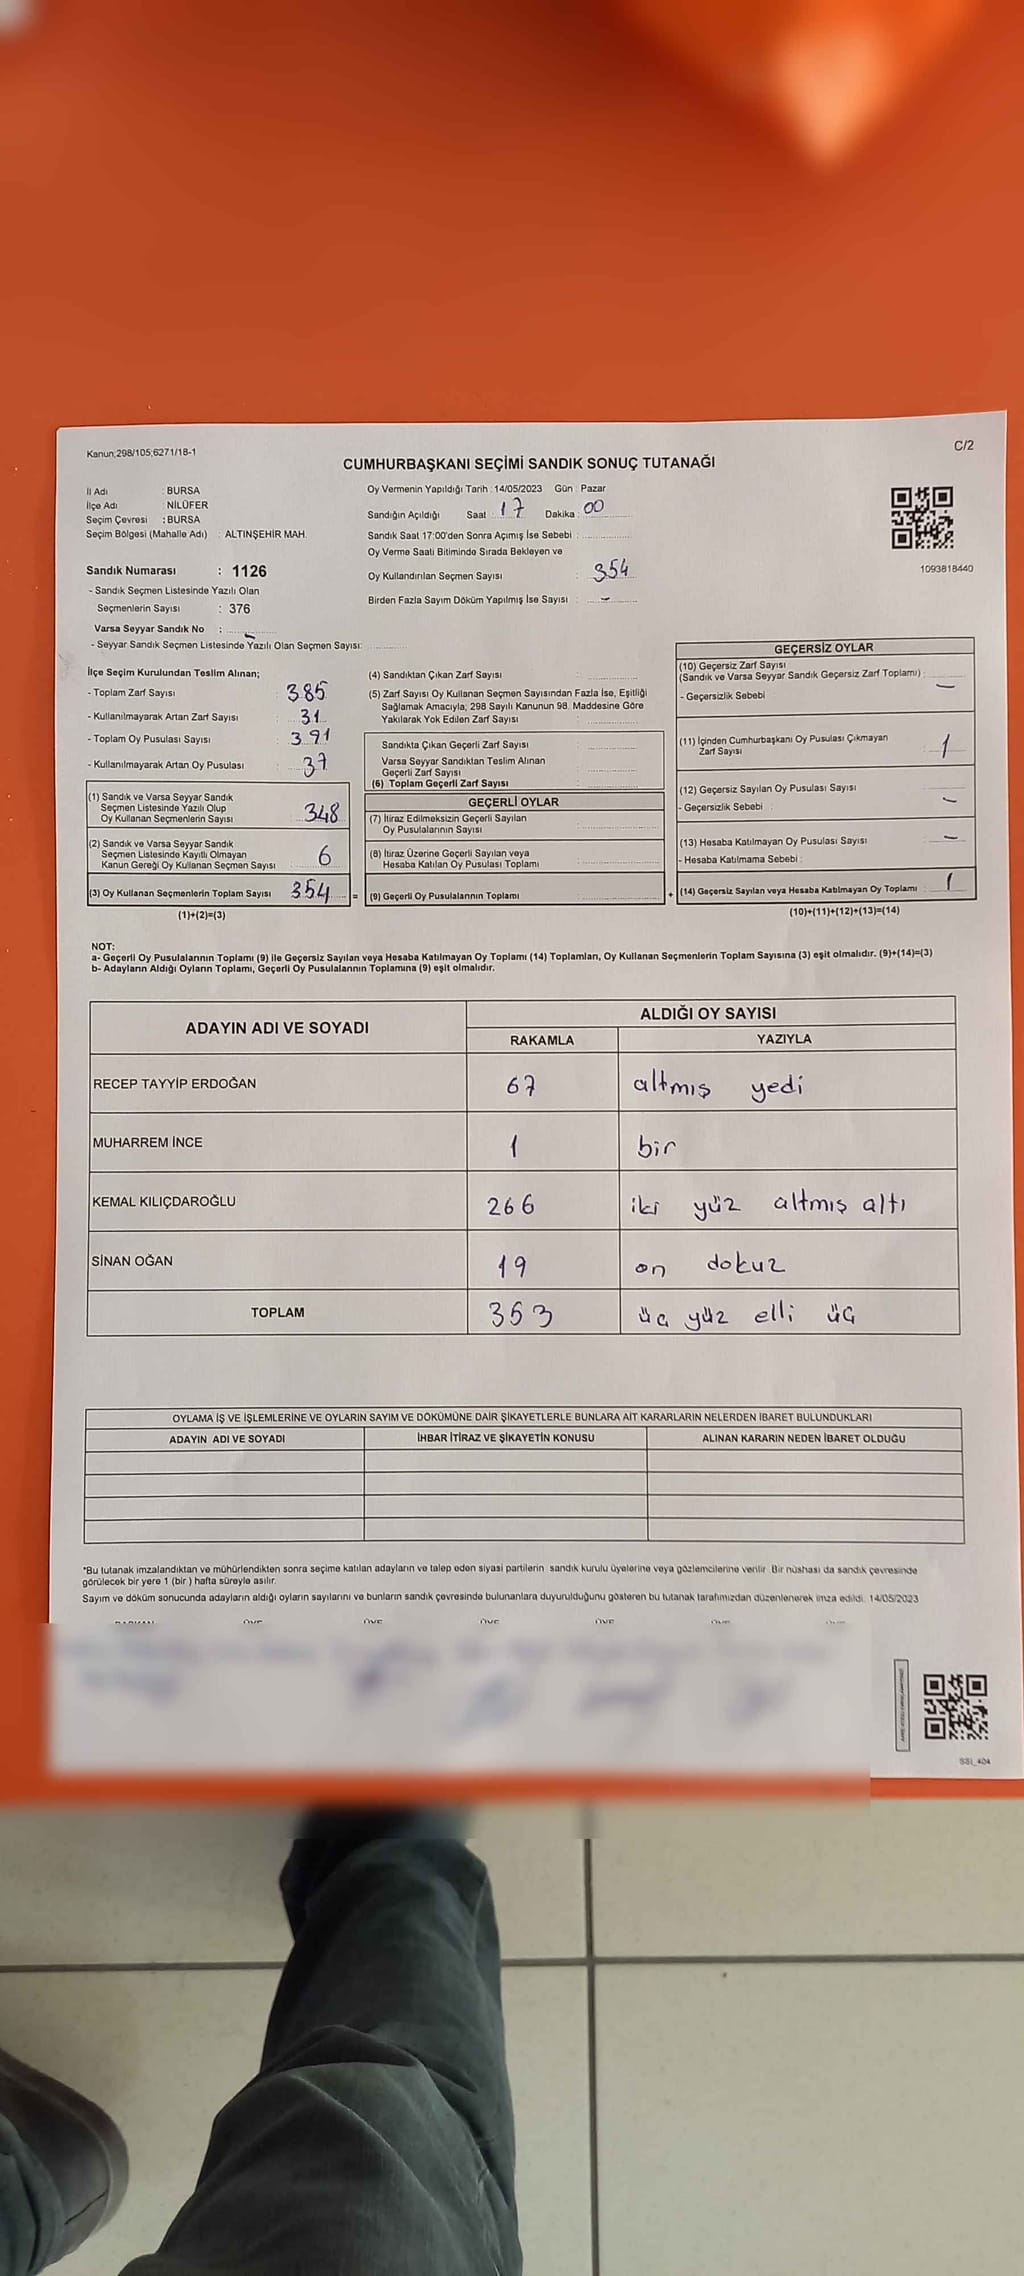 Kanun;298/105;6271/18-1
C/2
CUMHURBAŞKANI SEÇİMİ SANDIK SONUÇ TUTANAĞI
İl Adı : BURSA
İlçe Adı : NİLÜFER
Seçim Çevresi : BURSA
Seçim Bölgesi (Mahalle Adı) : ALTINŞEHİR MAH.
Sandık Numarası : 1126
- Sandık Seçmen Listesinde Yazılı Olan
Seçmenlerin Sayısı : 376
Varsa Seyyar Sandık No : -
- Seyyar Sandık Seçmen Listesinde Yazılı Olan Seçmen Sayısı:
Oy Vermenin Yapıldığı Tarih : 14/05/2023 Gün : Pazar
Sandığın Açıldığı Saat : 17 Dakika : 00
Sandık Saat 17:00'den Sonra Açımış İse Sebebi :
Oy Verme Saati Bitiminde Sırada Bekleyen ve
Oy Kullandırılan Seçmen Sayısı : 354
Birden Fazla Sayım Döküm Yapılmış İse Sayısı : -
1093818440
İlçe Seçim Kurulundan Teslim Alınan;
- Toplam Zarf Sayısı : 385
- Kullanılmayarak Artan Zarf Sayısı : 31
- Toplam Oy Pusulası Sayısı : 391
- Kullanılmayarak Artan Oy Pusulası : 37
(1) Sandık ve Varsa Seyyar Sandık
Seçmen Listesinde Yazılı Olup
Oy Kullanan Seçmenlerin Sayısı : 348
(2) Sandık ve Varsa Seyyar Sandık
Seçmen Listesinde Kayıtlı Olmayan
Kanun Gereği Oy Kullanan Seçmen Sayısı : 6
(3) Oy Kullanan Seçmenlerin Toplam Sayısı : 354
(1)+(2)=(3)
(4) Sandıktan Çıkan Zarf Sayısı :
(5) Zarf Sayısı Oy Kullanan Seçmen Sayısından Fazla İse, Eşitliği
Sağlamak Amacıyla; 298 Sayılı Kanunun 98. Maddesine Göre
Yakılarak Yok Edilen Zarf Sayısı :
Sandıkta Çıkan Geçerli Zarf Sayısı :
Varsa Seyyar Sandıktan Teslim Alınan
Geçerli Zarf Sayısı :
(6) Toplam Geçerli Zarf Sayısı :
GEÇERLİ OYLAR
(7) İtiraz Edilmeksizin Geçerli Sayılan
Oy Pusulalarının Sayısı :
(8) İtiraz Üzerine Geçerli Sayılan veya
Hesaba Katılan Oy Pusulası Toplamı :
= (9) Geçerli Oy Pusulalarının Toplamı :
GEÇERSİZ OYLAR
(10) Geçersiz Zarf Sayısı
(Sandık ve Varsa Seyyar Sandık Geçersiz Zarf Toplamı) :
- Geçersizlik Sebebi : -
(11) İçinden Cumhurbaşkanı Oy Pusulası Çıkmayan
Zarf Sayısı : 1
(12) Geçersiz Sayılan Oy Pusulası Sayısı :
- Geçersizlik Sebebi : -
(13) Hesaba Katılmayan Oy Pusulası Sayısı : -
- Hesaba Katılmama Sebebi :
+ (14) Geçersiz Sayılan veya Hesaba Katılmayan Oy Toplamı : 1
(10)+(11)+(12)+(13)=(14)
NOT:
a- Geçerli Oy Pusulalarının Toplamı (9) ile Geçersiz Sayılan veya Hesaba Katılmayan Oy Toplamı (14) Toplamları, Oy Kullanan Seçmenlerin Toplam Sayısına (3) eşit olmalıdır. (9)+(14)=(3)
b- Adayların Aldığı Oyların Toplamı, Geçerli Oy Pusulalarının Toplamına (9) eşit olmalıdır.
ADAYIN ADI VE SOYADI
ALDIĞI OY SAYISI
RAKAMLA YAZIYLA
RECEP TAYYİP ERDOĞAN 67 altmış yedi
MUHARREM İNCE 1 bir
KEMAL KILIÇDAROĞLU 266 iki yüz altmış altı
SİNAN OĞAN 19 on dokuz
TOPLAM 353 üç yüz elli üç
OYLAMA İŞ VE İŞLEMLERİNE VE OYLARIN SAYIM VE DÖKÜMÜNE DAİR ŞİKAYETLERLE BUNLARA AİT KARARLARIN NELERDEN İBARET BULUNDUKLARI
ADAYIN ADI VE SOYADI İHBAR İTİRAZ VE ŞİKAYETİN KONUSU ALINAN KARARIN NEDEN İBARET OLDUĞU
*Bu tutanak imzalandıktan ve mühürlendikten sonra seçime katılan adayların ve talep eden siyasi partilerin sandık kurulu üyelerine veya gözlemcilerine verilir. Bir nüshası da sandık çevresinde
görülecek bir yere 1 (bir ) hafta süreyle asılır.
Sayım ve döküm sonucunda adayların aldığı oyların sayılarını ve bunların sandık çevresinde bulunanlara duyurulduğunu gösteren bu tutanak tarafımızdan düzenlenerek imza edildi. 14/05/2023
SSI_404